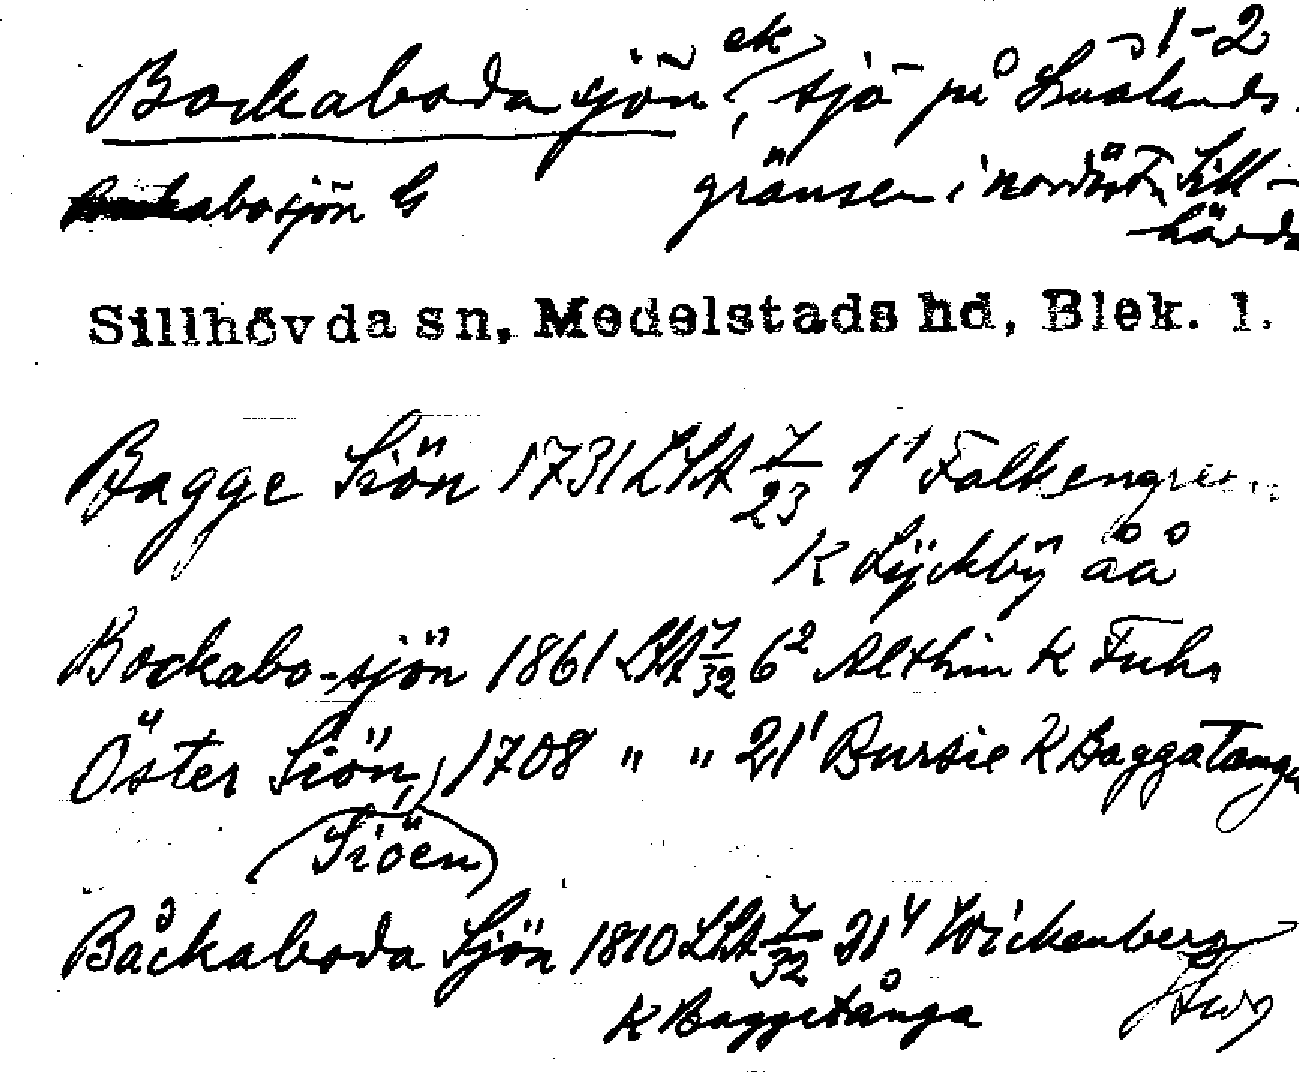 1-2
Bockabodasjön ek, sjö på Smålands
gränsen i nordöst. Sill-
hövda
abosjön G
Sillhövda sn, Medelstads hd, Blek. l.
Bagge Siön 1731 LSA 7/23 1¹ Falkengren
K Lÿckbÿ åå
Bockabo-sjön 1861 LSA 7/32 6² Althin K Fuhs
Öster Siön, 1708 " " 21¹ Bursie K Baggatånga
(Siöen)
Båckaboda Sjön 1810 LSA 7/32 21⁴ Wickenberg
K Baggetånga